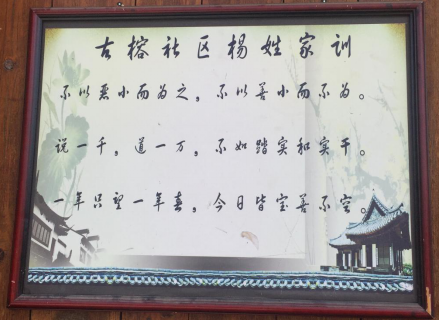 古榕社区杨姓家训
不以恶小而为之，不以善小而不为。
说一千，道一万，不如踏实和实干。
一年只望一年春，今日皆宝善不空。